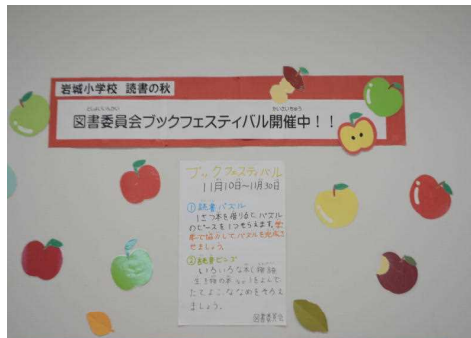 岩城小学校 読書の秋
図書委員会ブックフェスティバル開催中！！
ブックフェスティバル
11月10日～11月30日
①読書パズル
1さつ本を借りると、パズル
のピースを1つもらえます。
協力してパズルを完成さ
せましょう。
②読書ビンゴ
いろいろな本(物語
をよんで
たて、よこ、ななめをそろえ
ましょう。
図書委員会